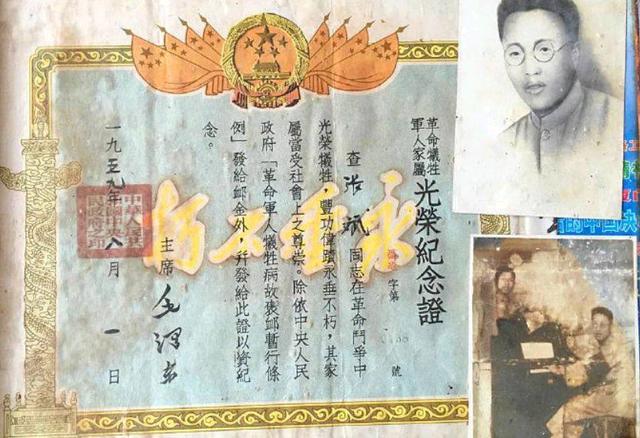 革命犧牲
軍人家屬
光榮紀念證
字第 號
查 张 同志在革命鬥爭中
光榮犧牲,豐功偉蹟永垂不朽,其家
屬當受社會上之尊崇。除依中央人民
政府「革命軍人犧牲病故褒卹暫行條
例」發給卹金外,并發給此證以資紀
念。
主席 毛泽东
一九五九年八月一日
永垂不朽
中華人民共和國中央人民政府之印